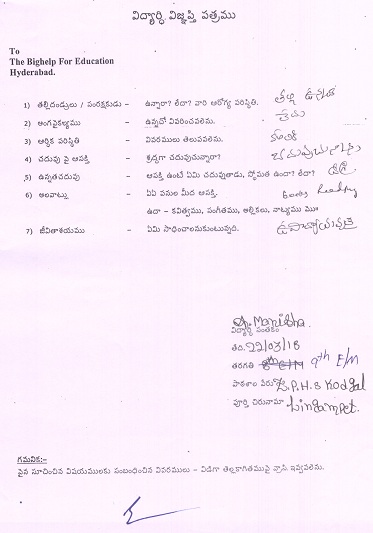 విద్యార్ధి విజ్ఞప్తి పత్రము
To
The Bighelp For Education
Hyderabad.
1) తల్లిదండ్రులు / సంరక్షకుడు – ఉన్నారా? లేదా? వారి ఆరోగ్య పరిస్థితి. తల్లి
2) అంగవైకల్యము – ఉన్నదో వివరించవలెను.
3) ఆర్ధిక పరిస్థితి – వివరములు తెలుపవలెను.
4) చదువు పై ఆసక్తి – శ్రద్ధగా చదువుచున్నారా?
5) ఉన్నతచదువు – ఆసక్తి ఉంటే ఏమి చదువుతాడు, స్థోమత ఉందా? లేదా?
6) అలవాట్లు – ఏఏ పనుల మీద ఆసక్తి.
ఉదా – కవిత్వము, సంగీతము, అల్లికలు, నాట్యము ముః
7) జీవితాశయము – ఏమి సాధించాలనుకుంటున్నది.
Manisha.
విద్యార్ధి సంతకం
తేది. 22/03/18
తరగతి 9th E/M
పాఠశాల పేరు Z.P.H.S Kodgal
పూర్తి చిరునామా Lingampet.
గమనిక:-
పైన సూచించిన విషయములకు సంబంధించిన వివరములు – విడిగా తెల్లకాగితముపై వ్రాసి ఇవ్వవలెను.